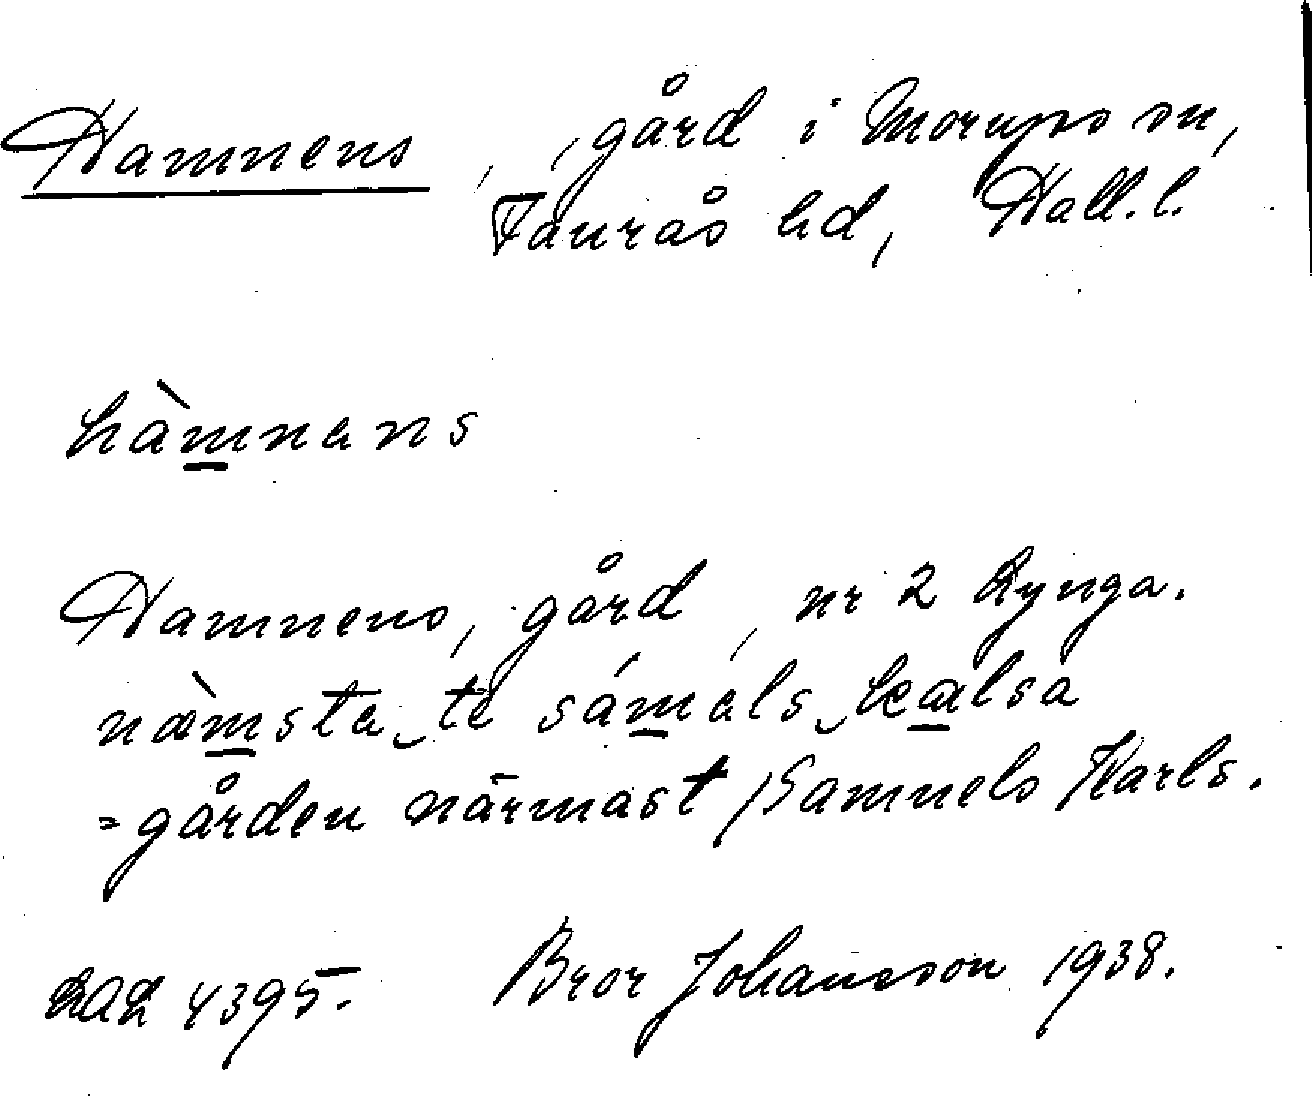 Hamnens, gård i Morups sn,
Faurås hd, Hall.l.
hàmnens
Hamnens, gård, nr 2 Lynga.
næ̀msta te sámels kælsa
= gården närmast Samuels Karls.
LAL 4395. Bror Johansson 1938.